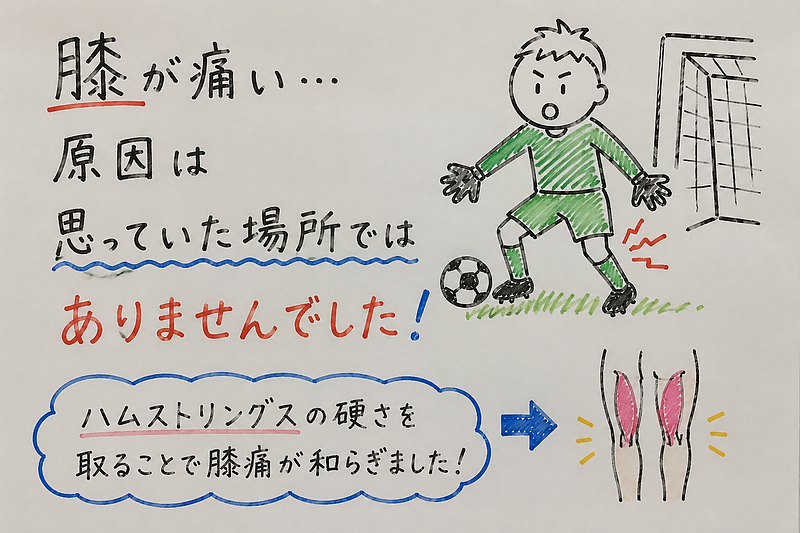 膝が痛い…
原因は
思っていた場所では
ありませんでした!
ハムストリングスの硬さを
取ることで膝痛が和らぎました!